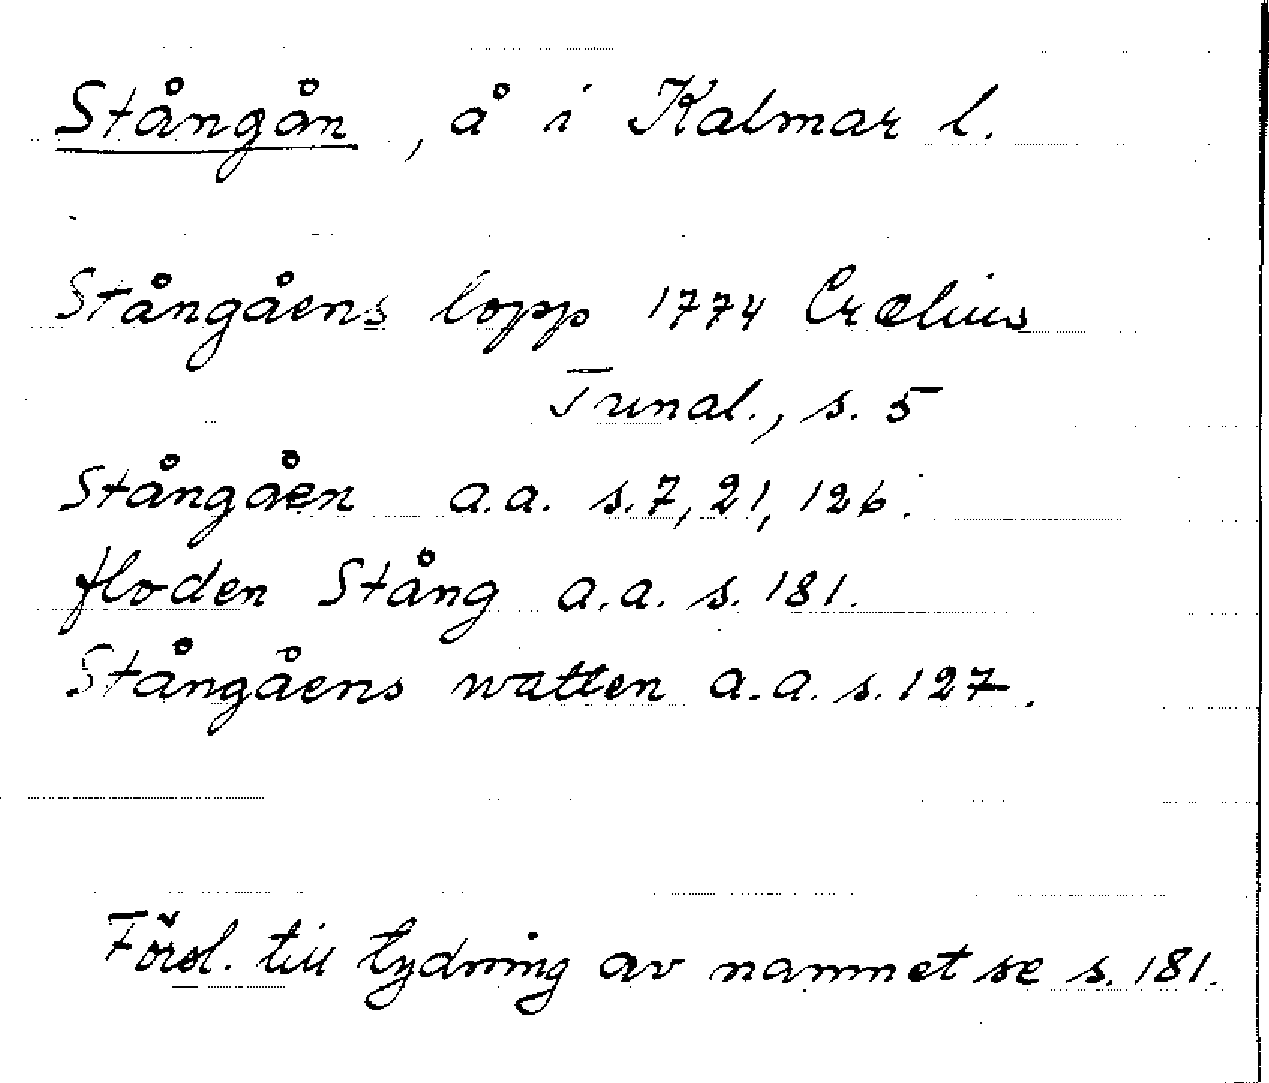 Stångån, å i Kalmar l.
Stångåens lopp 1774 Crælius
Tunal., s. 5
Stångåen a.a. s. 7, 21, 126.
floden Stång a.a. s. 181.
Stångåens watten a.a. s. 127.
Försl. till tydning av namnet se s. 181.